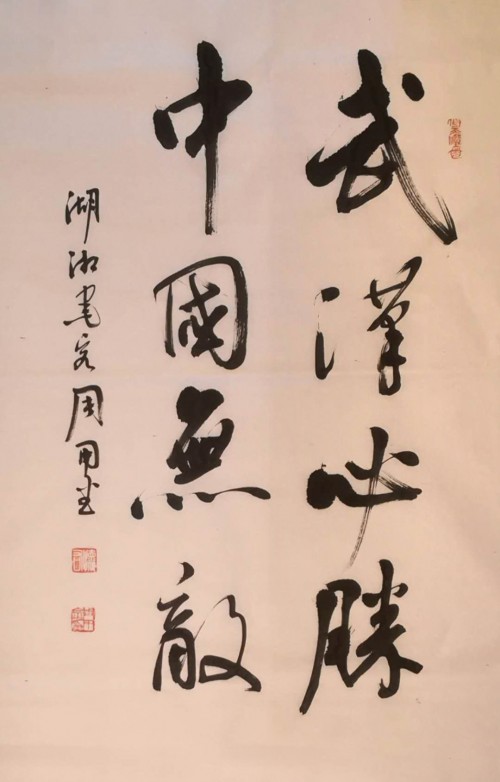 武漢必勝
中國無敵
湖湘書客周用金